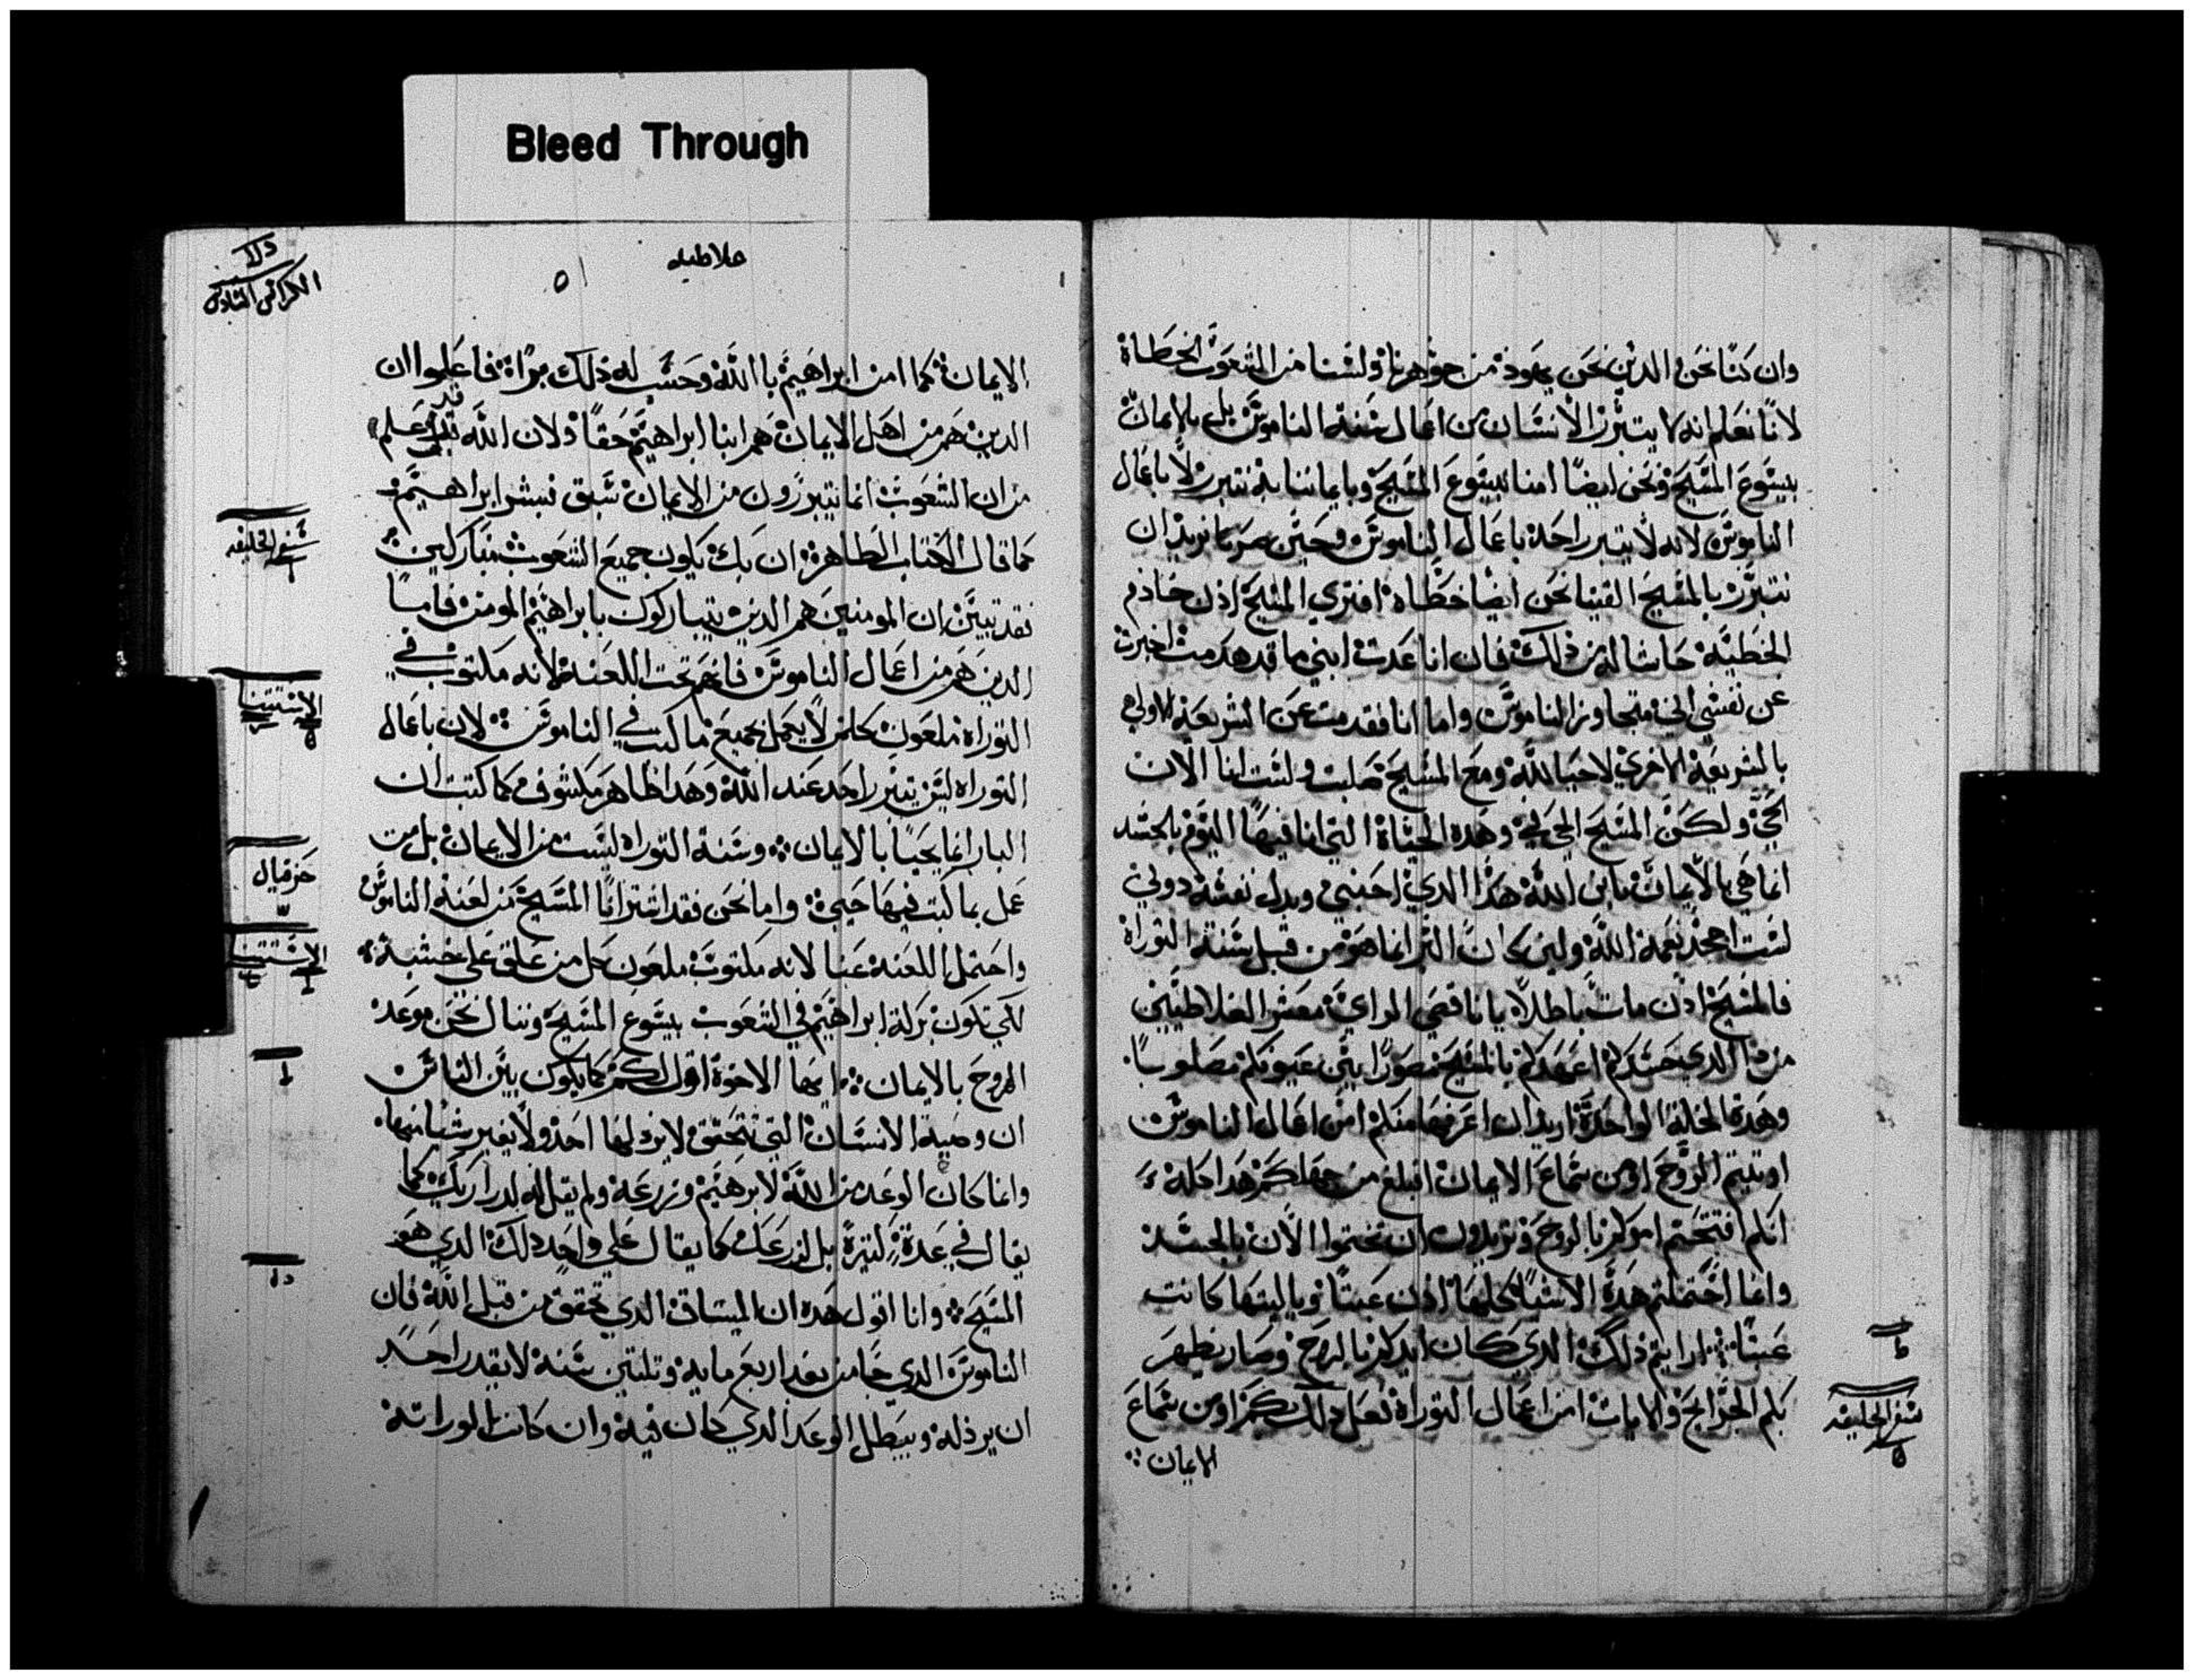 Bleed Through
وان كنا نحن الدين نحن يهود من جوهرنا ولسنا من الشعوب الخطاة
لانا نعلم انه لا يتبرر الانسان من اعمال سنة الناموس بل بالايمان
بيسوع المسيح ونحن ايضا امنا بيسوع المسيح وبايماننا به نتبرر لا باعمال
الناموس لانه لا يتبرر احد باعمال الناموس وحين صرنا نريد ان
نتبرر بالمسيح الفينا نحن ايضا خطاه افتري المسيح اذن خادم
الخطية حاشا له من ذلك فان انا عدت ابني ما قد هدمت اخبرت
عن نفسي اني متجاوز الناموس واما انا فقد مت عن الشريعة الاولي
بالشريعة الاخري لاحيا لله ومع المسيح صلبت ولست انا الان
احيي ولكن المسيح الحي في وهده الحياة التي انا فيها اليوم بالجسد
انما هي بالايمان بابن الله هذا الدي احبني وبدل نفسه دوني
لست اجحد نعمة الله ولين كان البر انما هو من قبل سنة التوراة
فالمسيح اذن مات باطلا يا ناقصي الراي معشر الغلاطيين
من ذا الدي حسدكم اعهدكم بالمسيح مصورا بين عيونكم مصلوبا
وهده الخلة الواحدة اريد ان اعرفها منكم امن اعمال الناموس
اوتيتم الروح او من سماع الايمان افبلغ من جهلكم هدا كله
انكم افتتحتم امركم بالروح وتريدون ان تختموا الان بالجسد
وانما احتملتم هده الاشيا كلها اذن عبثا وياليتها كانت
عبثا ارايتم ذلك الدي كان ايدكم بالروح وصار يظهر
بكم الجرايح والايات امن اعمال التوراة فعل دلك بكم او من سماع
الايمان
ط
سفر الخليقه
ه
دلا
الكراس السادس
غلاطيه
٥١
الايمان كما امن ابراهيم بالله وحسب له ذلك براة فاعلموا ان
الدين هم من اهل الايمان هم ابنا ابراهيم حقا ولان الله قد علم
من ان الشعوب انما يتبررون من الايمان سبق فبشر ابراهيم
كما قال الكتاب الطاهر ان بك يكون جميع الشعوب متباركين
فقد تبين ان المومنين هم الدين يتباركون بابراهيم المومن فاما
الدين هم من اعمال الناموس فانهم تحت اللعنة لانه مكتوب في
التوراه ملعون كلمن لا يعمل بجميع ما كتب في الناموس لان باعمال
التوراه ليس يتبرر احد عند الله وهدا ظاهر مكشوف كما كتب ان
البار انما يحيا بالايمان وسنة التوراه ليست من الايمان بل من
عمل بما كتب فيها حيي واما نحن فقد اشترانا المسيح من لعنة الناموس
واحتمل اللعنة عنا لانه مكتوب ملعون كل من علق على خشبة
لكي تكون بركة ابراهيم في الشعوب بيسوع المسيح وننال نحن موعد
الروح بالايمان ايها الاخوة اقول لكم كما يكون بين الناس
ان وصية الانسان التي تتحقق لا يردلها احد ولا يغير شيا منها
وانما كان الوعد من الله لابرهيم وزرعه ولم يقل له لدراريك كما
يقال في عدة كثيرة بل لزرعك كما يقال على واحد دلك الدي هو
المسيح وانا اقول هده ان الميتاق الدي تحقق من قبل الله فان
الناموس الدي جا من بعد اربع مايه وتلتين سنة لا يقدر احد
ان يرذله ويبطل الوعد الدي كان فيه وان كانت الوراثة
سفر الخليقه
الاستتنا
حزقيال
الاستتنا